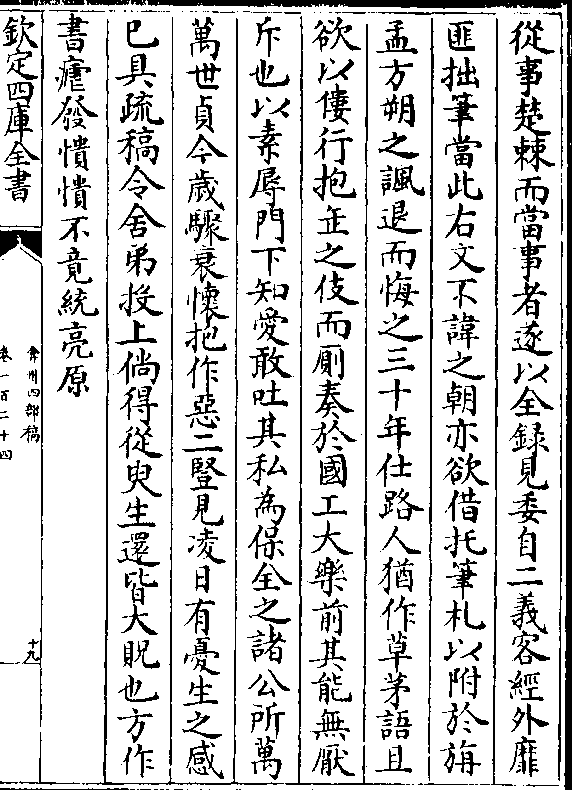 從事楚棘而當事者遂以全錄見委自二義客經外靡
匪拙筆當此右文不諱之朝亦欲借托筆札以附於旃
孟方朔之諷退而悔之三十年仕路人猶作草茅語且
欲以僂行抱缶之伎而厠奏於國工大樂前其能無厭
斥也以素辱門下知愛敢吐其私為保全之諸公所萬
萬世貞今歲驟衰懷抱作惡二豎見凌日有憂生之感
已具疏稿令舍弟投上倘得從臾生還皆大貺也方作
書瘧發憒憒不竟統亮原
欽定四庫全書
弇州四部稿
卷一百二十四
十九